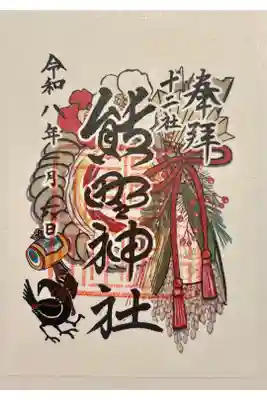 奉拝
十二社
熊野神社
令和八年二月六日